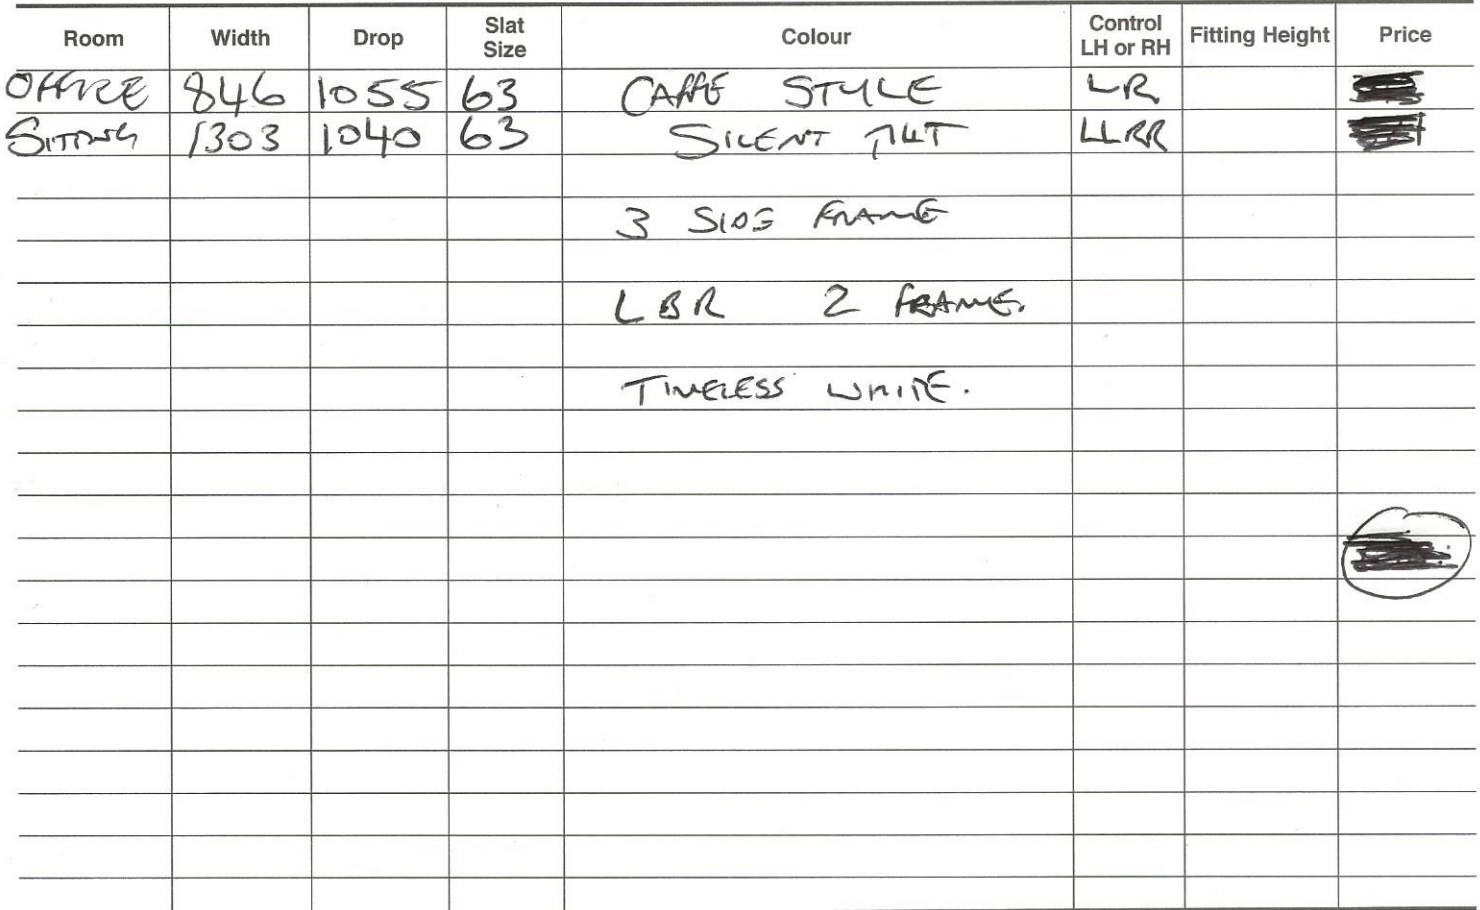 Room Width Drop Slat Size Colour Control LH or RH Fitting Height Price
OFFICE 846 1055 63 CAFFE STYLE LR
SITTING 1303 1040 63 SILENT TILT LLRR
3 SIDE FRAME
LBR 2 FRAME.
TIMELESS WHITE.